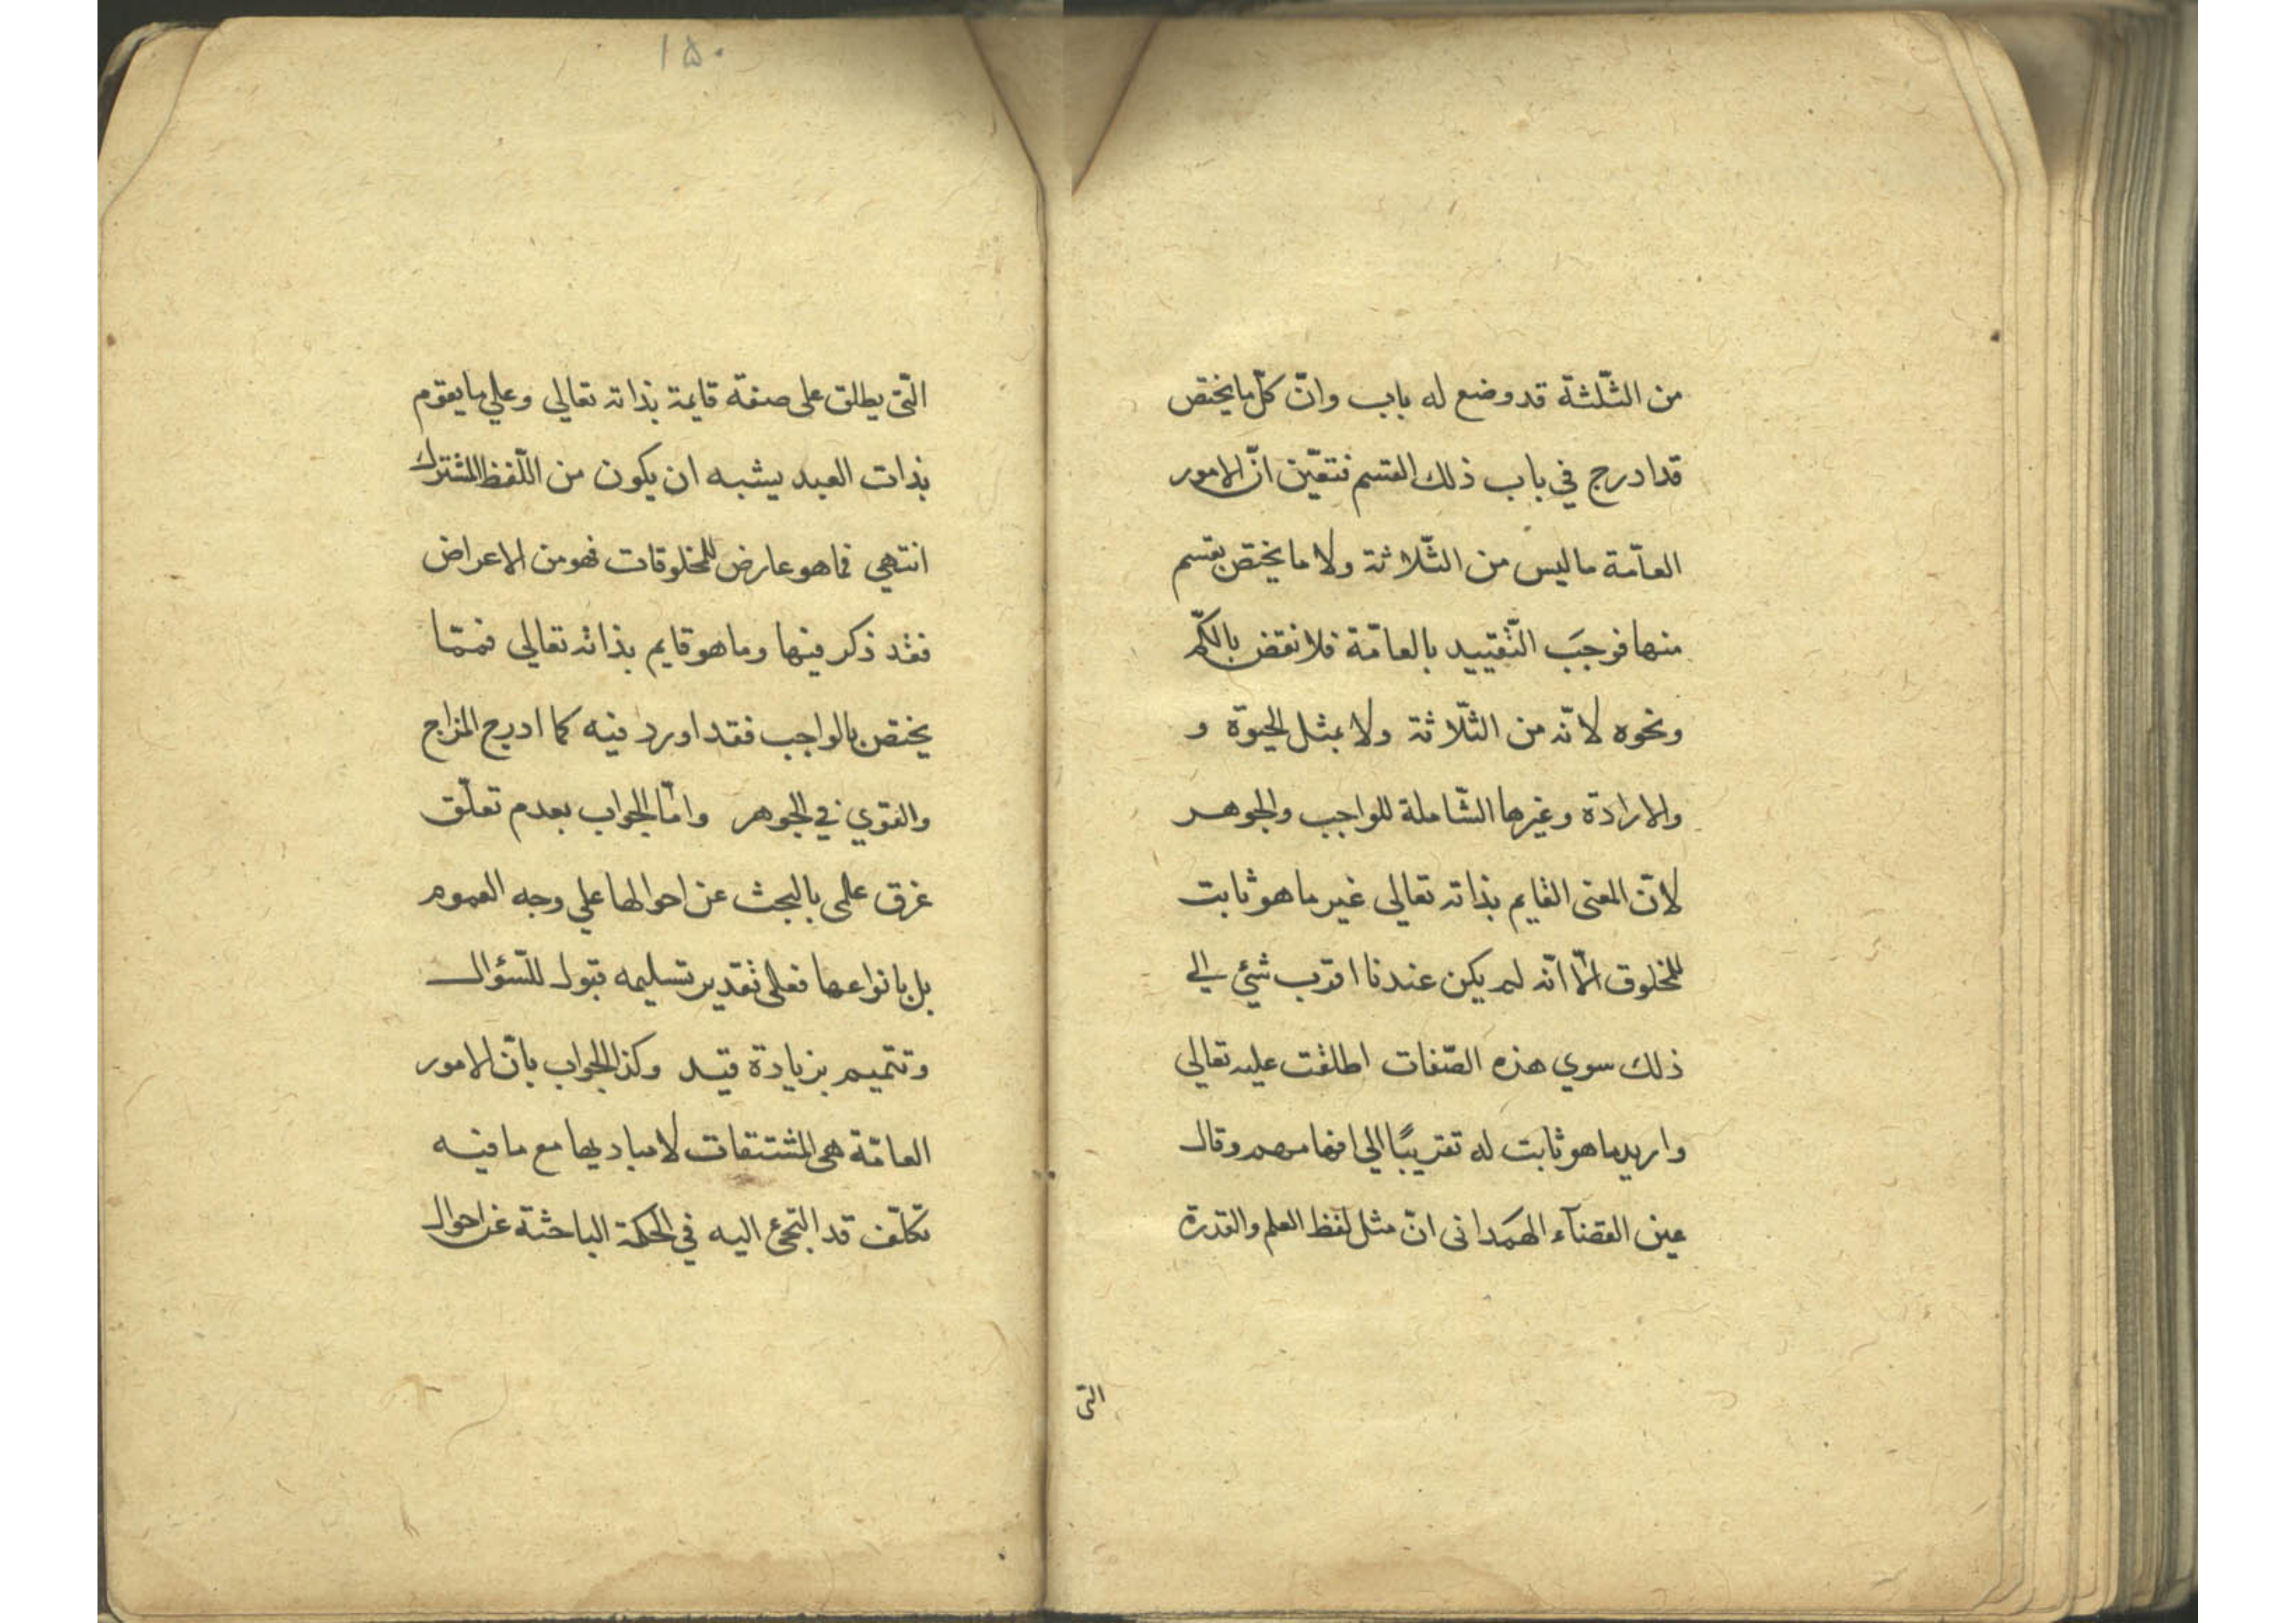 من الثّلثة قد وضع له باب وانّ كلّ ما يختصّ
قد ادرج في باب ذلك القسم فتعّين انّ الامور
العامّة ما ليس من الثّلاثة ولا ما يختصّ بقسم
منها فوجَب التّقييد بالعامّة فلا نقض بالكمّ
ونحوه لانّه من الثّلاثة ولا بمثل الحيوة و
والارادة وغيرها الشّاملة للواجب والجوهر
لانّ المعنى القايم بذاته تعالى غير ما هو ثابت
للمخلوق الّا انّه لم يكن عندنا اقرب شئي الي
ذلك سوي هذه الصّفات اطلقت عليه تعالي
واريد ما هو ثابت له تقريبًا الي افهامهم وقال
عين القضآء الهمَداني انّ مثل لفظ العلم والقدرة
التى
١٥٠
الّتى يطلق على صفة قايمة بذاته تعالي وعلي ما يقوم
بذات العبد يشبه ان يكون من اللّفظ المشترك
انتهي فما هو عارض للمخلوقات فهو من الاعراض
فقد ذكر فيها وما هو قايم بذاته تعالي فممّا
يختصّ بالواجب فقد اورد فيه كما ادرج المزاج
والقوي في الجوهر وامّا الجواب بعدم تعلّق
غرق علمى بالبحث عن احوالها علي وجه العموم
بل بانواعها فعلى تقدير تسليمه قبول للسّؤال
وتتميم بزيادة قيد وكذا الجواب بانّ الامور
العامّة هى المشتقات لا مباديها مع ما فيه
تكلّف قد التجئ اليه في الحكمة الباحثة عن احوال